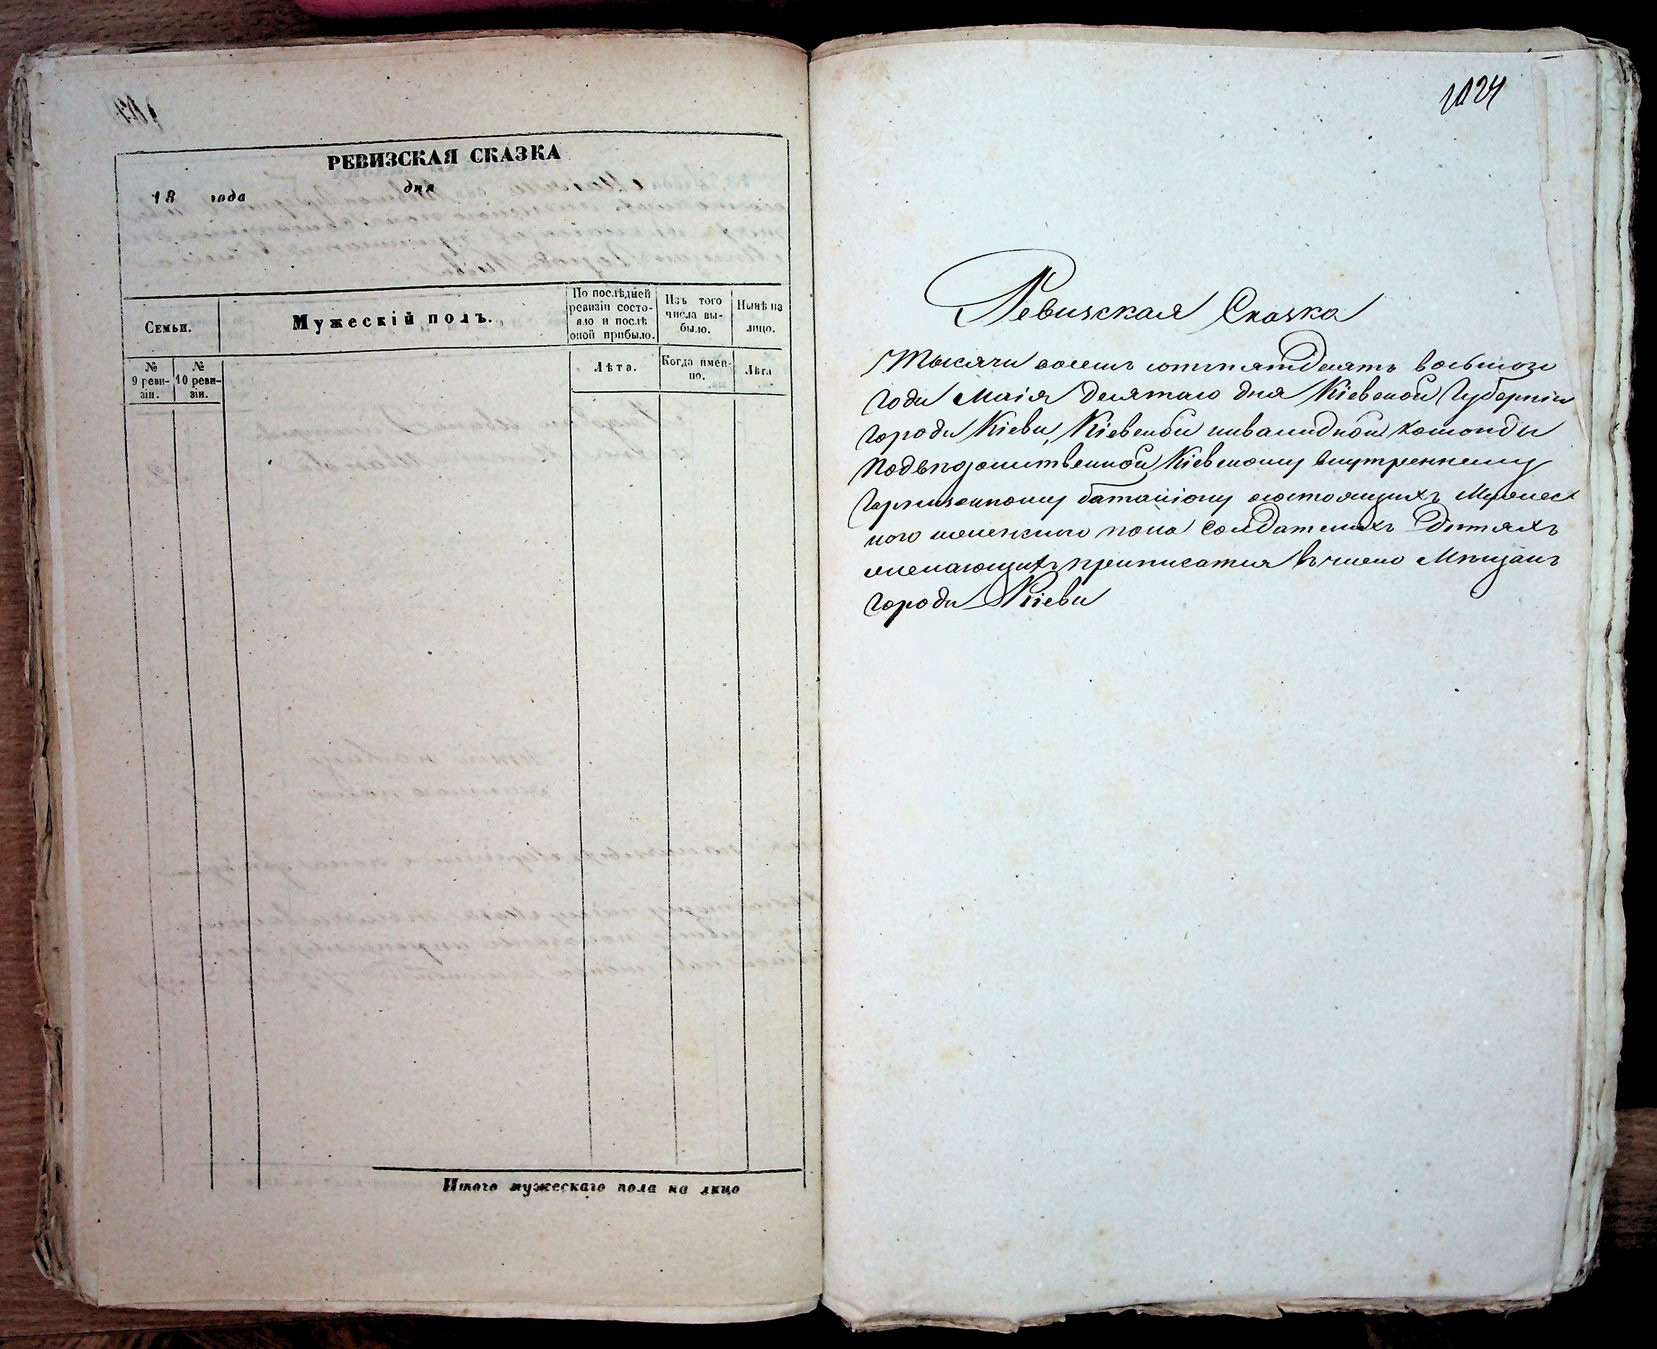 РЕВИЗСКАЯ СКАЗКА
18 года дня
Семьи.
Мужескій полъ.
По послѣдней
ревизіи состо-
яло и послѣ
оной прибыло.
Изъ того
числа вы-
было.
Нынѣ на
лицо.
№
9 реви-
зіи.
№
10 реви-
зіи.
Лѣта.
Когда имен-
но.
Лѣта
Итого мужескаго пола на лицо
1024
Ревизская Сказка
Тысяча восемь сотъ пятдесятъ восьмого
года Маія десятаго дня Кіевской Губерніи
города Кіева, Кіевской инвалидной команды
Кіевскому внутреннему
Гарнизонному баталіону состоящихъ Мужес
кого женского пола солдатскихъ дѣтяхъ
желающихъ приписатся въ число Мѣщанъ
города Кіева